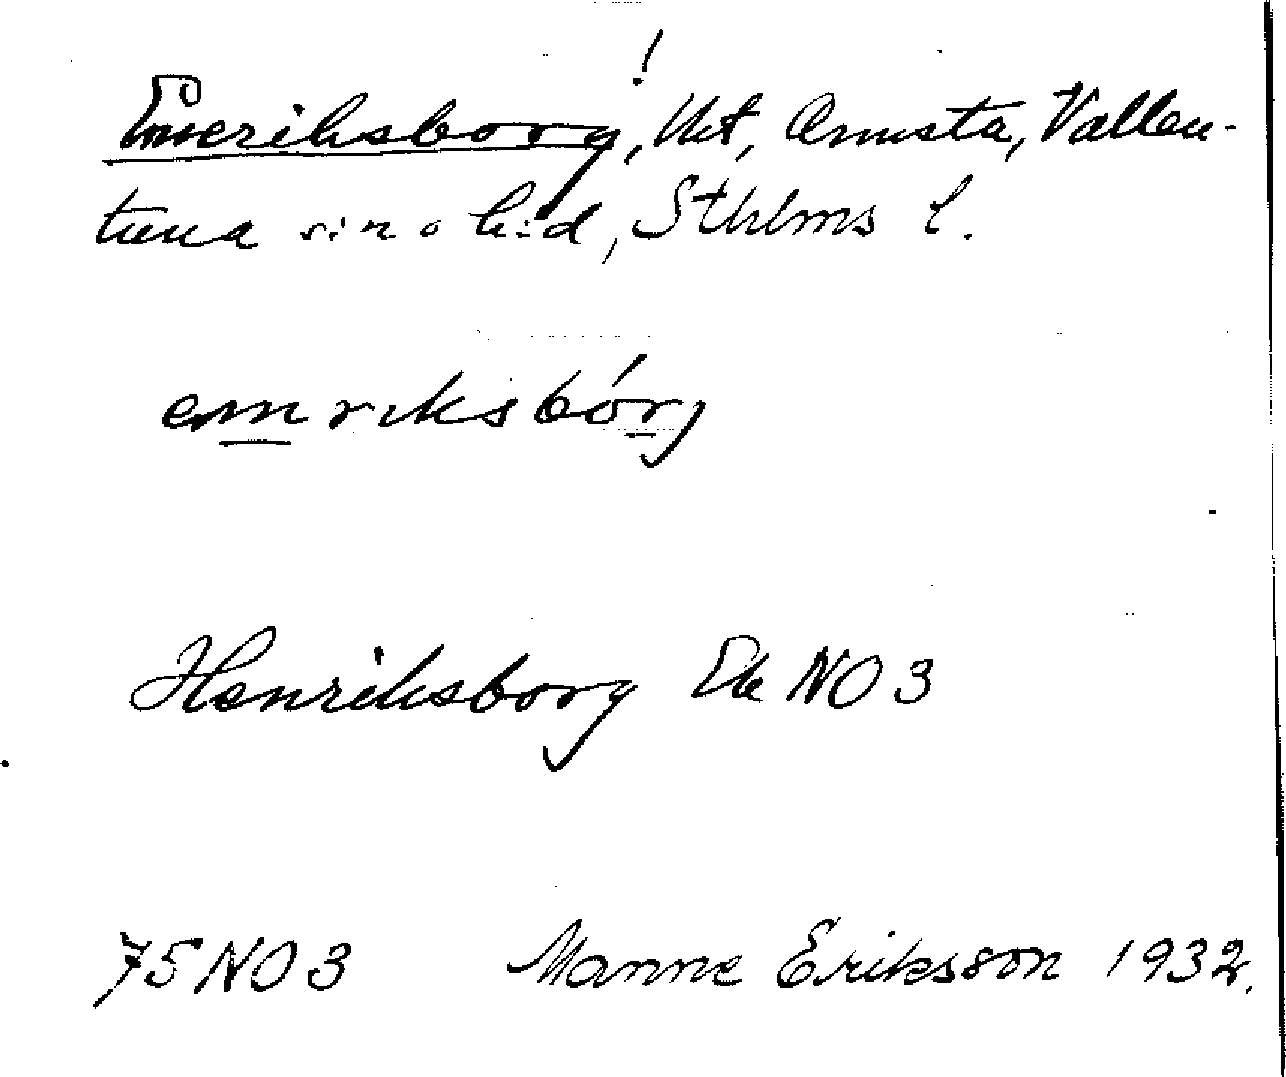 Emeriksborg!, Uet, Amsta, Vallen-
tuna sn o hd, Sthlms l.
emriksbórj
Henriksborg Ek NO 3
75 NO 3 Manne Eriksson 1932.